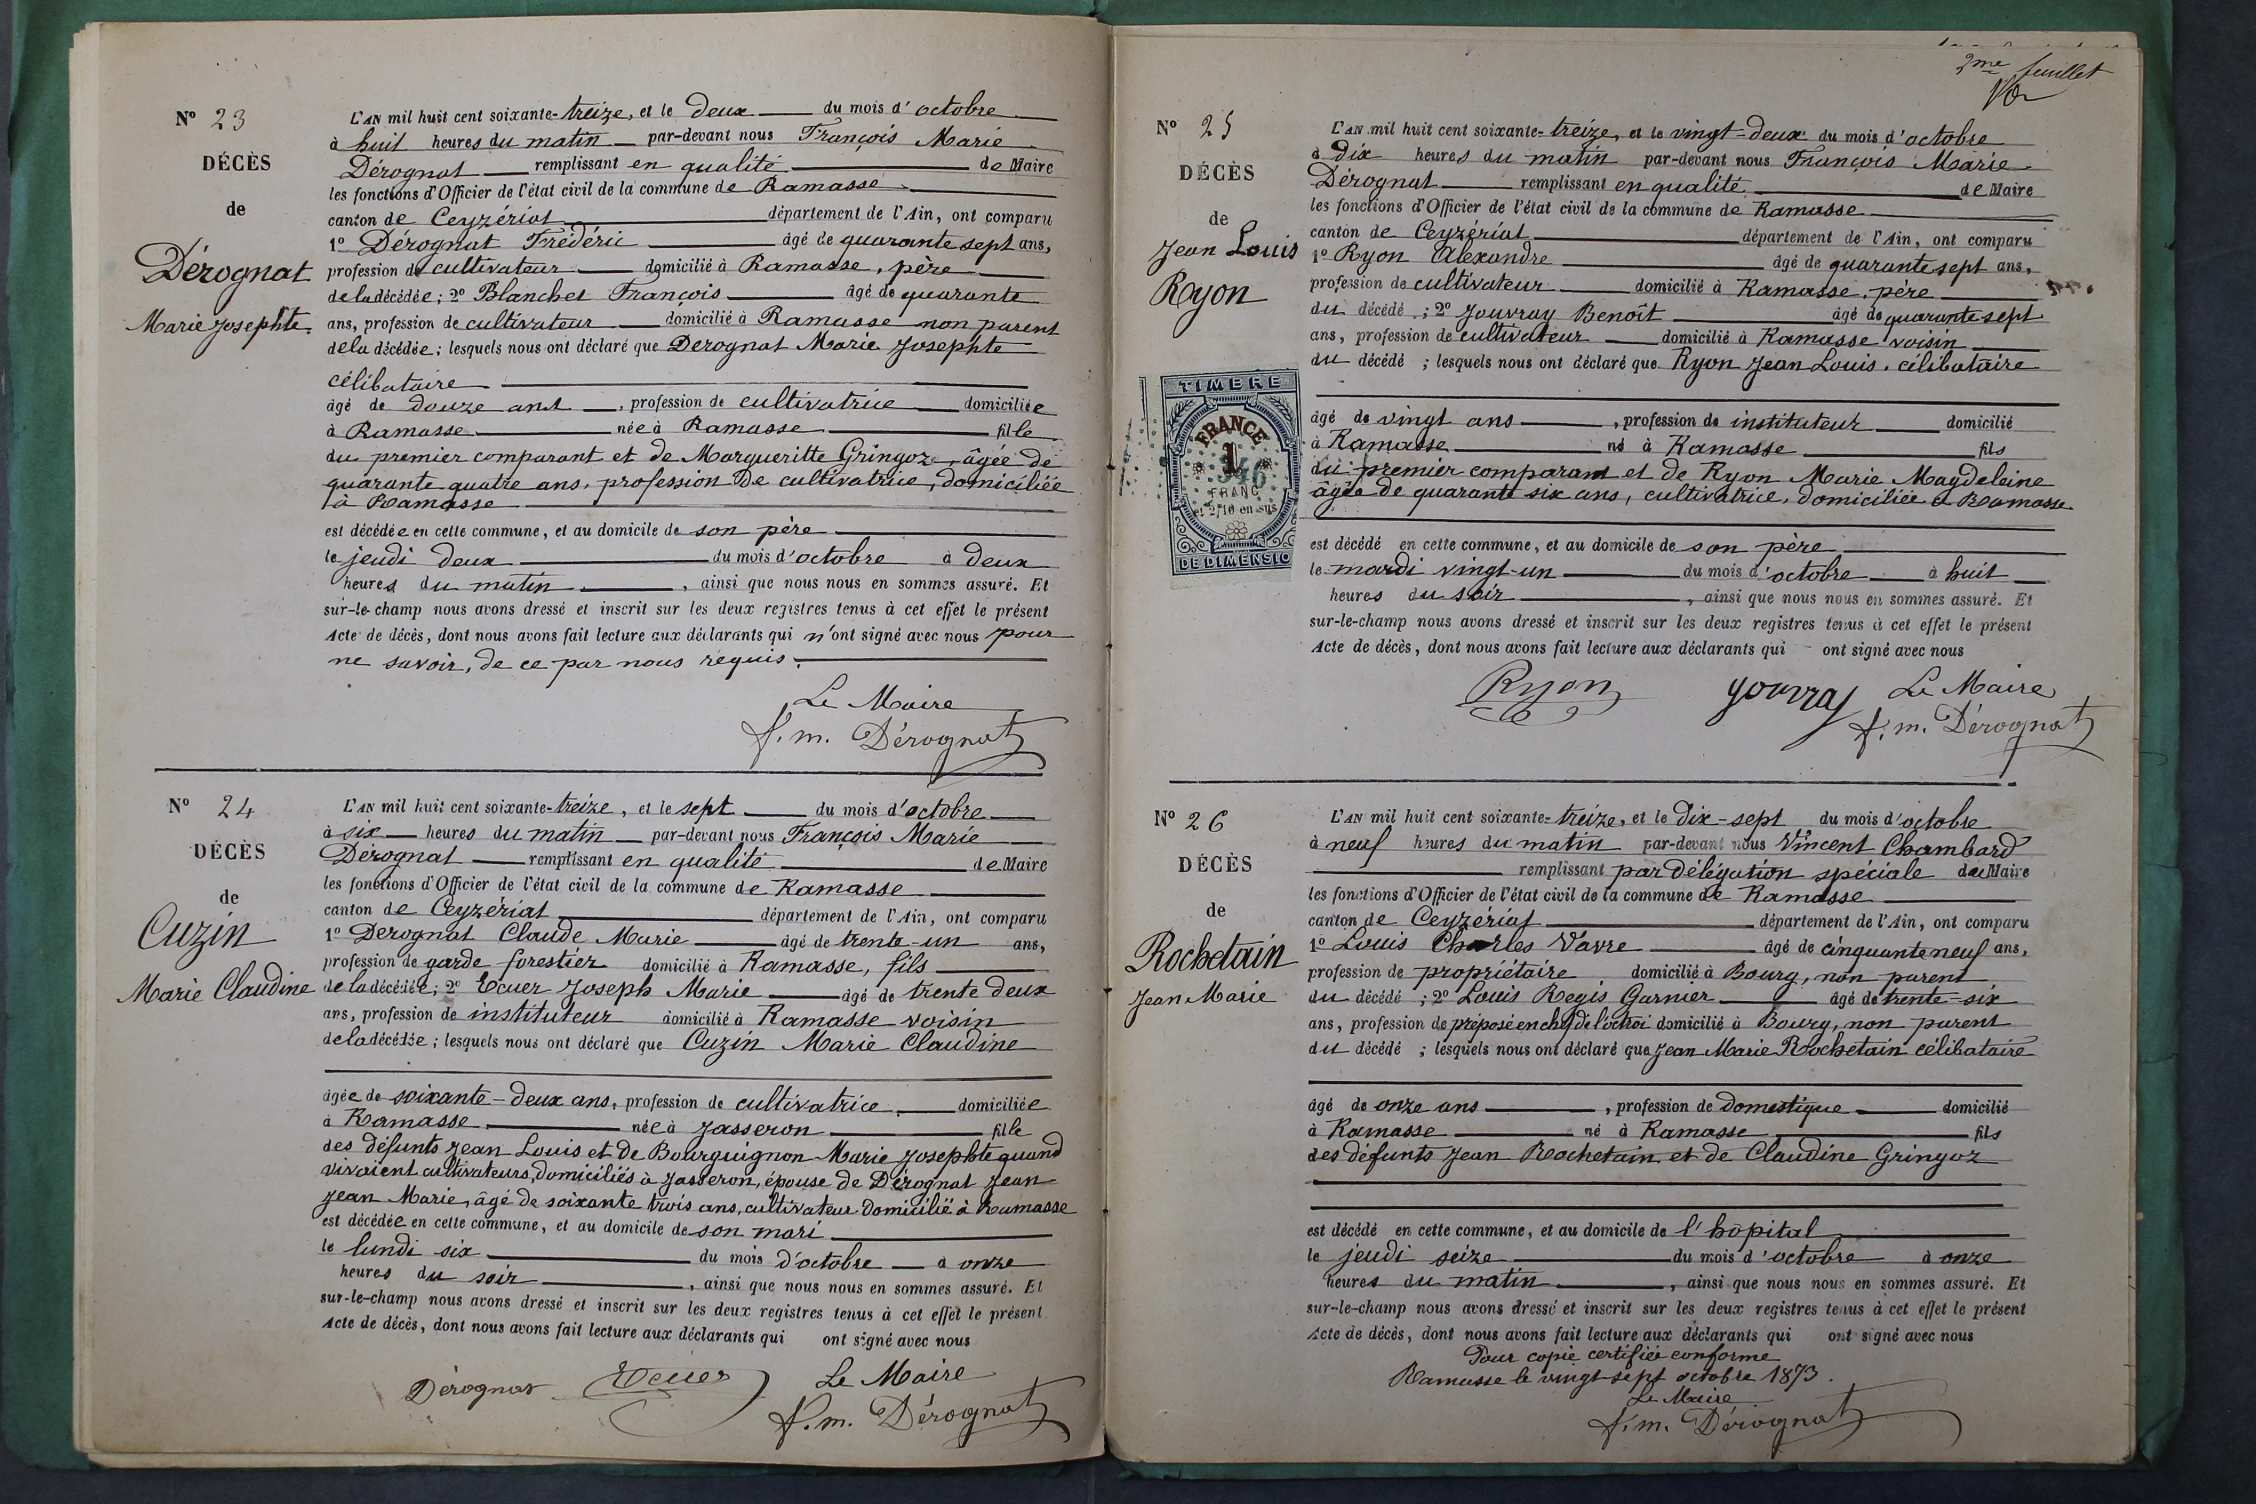 Nº 23
DÉCÈS
de
Dérognat
Marie Josephte.
L'AN mil huit cent soixante-treize, et le deux du mois d'octobre
à huit heures du matin par-devant nous François Marie
Dérognat remplissant en qualité de Maire
les fonctions d'Officier de l'état civil de la commune de Ramasse
canton de Ceyzériat département de l'Ain, ont comparu
1º Dérognat Frédéric âgé de quarante sept ans,
profession de cultivateur domicilié à Ramasse, père
de la décédée; 2º Blanchet François âgé de quarante
ans, profession de cultivateur domicilié à Ramasse non parent
de la décédée; lesquels nous ont déclaré que Derognat Marie Josephte
célibataire
âgé de douze ans, profession de cultivatrice domiciliée
à Ramasse née à Ramasse fille
du premier comparant et de Margueritte Gringoz, âgée de
quarante quatre ans, profession de cultivatrice, domiciliée
à Ramasse
est décédée en cette commune, et au domicile de son père
le jeudi deux du mois d'octobre à deux
heures du matin, ainsi que nous nous en sommes assuré. Et
sur-le-champ nous avons dressé et inscrit sur les deux registres tenus à cet effet le présent
Acte de décès, dont nous avons fait lecture aux déclarants qui n'ont signé avec nous pour
ne savoir, de ce par nous requis.
Le Maire
f. m. Dérognat
Nº 24
DÉCÈS
de
Cuzin
Marie Claudine
L'AN mil huit cent soixante-treize, et le sept du mois d'octobre
à six heures du matin par-devant nous François Marie
Dérognat remplissant en qualité de Maire
les fonctions d'Officier de l'état civil de la commune de Ramasse
canton de Ceyzériat département de l'Ain, ont comparu
1º Derognat Claude Marie âgé de trente-un ans,
profession de garde forestier domicilié à Ramasse, fils
de la décédée; 2º Ecuer Joseph Marie âgé de trente deux
ans, profession de instituteur domicilié à Ramasse voisin
de la décédée; lesquels nous ont déclaré que Cuzin Marie Claudine
âgée de soixante-deux ans, profession de cultivatrice domiciliée
à Ramasse née à Jasseron fille
des défunts Jean Louis et de Bourguignon Marie Josephte quand
vivaient cultivateurs, domiciliés à Jasseron, épouse de Dérognat Jean
Jean Marie, âgé de soixante trois ans, cultivateur domicilié à Ramasse
est décédée en cette commune, et au domicile de son mari
le lundi six du mois d'octobre à onze
heures du soir, ainsi que nous nous en sommes assuré. Et
sur-le-champ nous avons dressé et inscrit sur les deux registres tenus à cet effet le présent
Acte de décès, dont nous avons fait lecture aux déclarants qui ont signé avec nous
Dérognat Ecuer Le Maire
f. m. Dérognat
2me feuillet
Nº 25
DÉCÈS
de
Jean Louis
Ryon
TIMBRE
FRANCE
1
546
FRANC
et 2/10 en sus
DE DIMENSION
L'AN mil huit cent soixante-treize, et le vingt-deux du mois d'octobre
à dix heures du matin par-devant nous François Marie
Dérognat remplissant en qualité de Maire
les fonctions d'Officier de l'état civil de la commune de Ramasse
canton de Ceyzériat département de l'Ain, ont comparu
1º Ryon Alexandre âgé de quarante sept ans,
profession de cultivateur domicilié à Ramasse, père
du décédé; 2º Jouvray Benoît âgé de quarante sept
ans, profession de cultivateur domicilié à Ramasse voisin
du décédé; lesquels nous ont déclaré que Ryon Jean Louis, célibataire
âgé de vingt ans, profession de instituteur domicilié
à Ramasse né à Ramasse fils
du premier comparant et de Ryon Marie Magdeleine
âgée de quarante six ans, cultivatrice, domiciliée à Ramasse
est décédé en cette commune, et au domicile de son père
le mardi vingt-un du mois d'octobre à huit
heures du soir, ainsi que nous nous en sommes assuré. Et
sur-le-champ nous avons dressé et inscrit sur les deux registres tenus à cet effet le présent
Acte de décès, dont nous avons fait lecture aux déclarants qui ont signé avec nous
Ryon Jouvray Le Maire
f. m. Dérognat
Nº 26
DÉCÈS
de
Rochetain
Jean Marie
L'AN mil huit cent soixante-treize, et le dix-sept du mois d'octobre
à neuf heures du matin par-devant nous Vincent Chambard
remplissant par délégation spéciale du Maire
les fonctions d'Officier de l'état civil de la commune de Ramasse
canton de Ceyzériat département de l'Ain, ont comparu
1º Louis Charles Vavre âgé de cinquante neuf ans,
profession de propriétaire domicilié à Bourg, non parent
du décédé; 2º Louis Regis Garnier âgé de trente-six
ans, profession de préposé en chef de l'octroi domicilié à Bourg, non parent
du décédé; lesquels nous ont déclaré que Jean Marie Rochetain célibataire
âgé de onze ans, profession de domestique domicilié
à Ramasse né à Ramasse fils
des défunts Jean Rochetain et de Claudine Gringoz
est décédé en cette commune, et au domicile de l'hôpital
le jeudi seize du mois d'octobre à onze
heures du matin, ainsi que nous nous en sommes assuré. Et
sur-le-champ nous avons dressé et inscrit sur les deux registres tenus à cet effet le présent
Acte de décès, dont nous avons fait lecture aux déclarants qui ont signé avec nous
Pour copie certifiée conforme
Ramasse le vingt-sept octobre 1873.
Le Maire
f. m. Dérognat